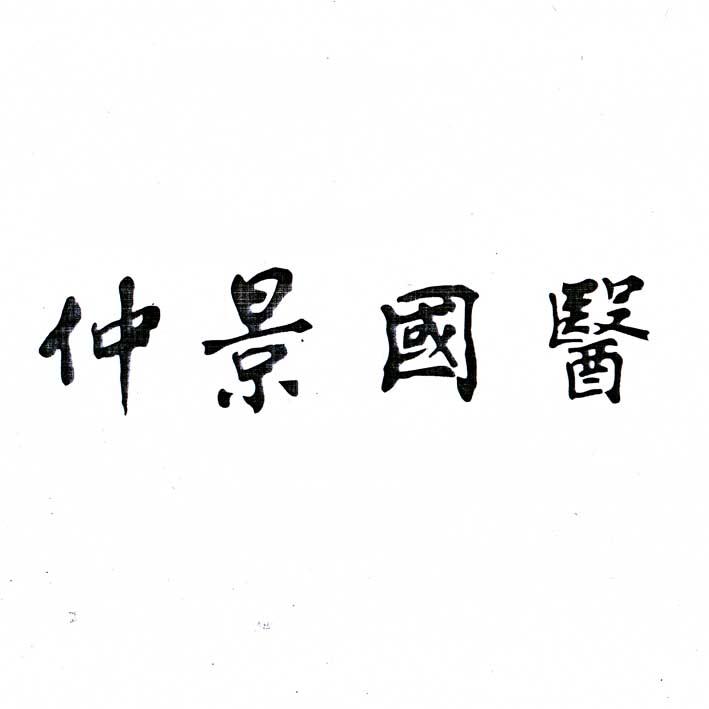 仲景國醫